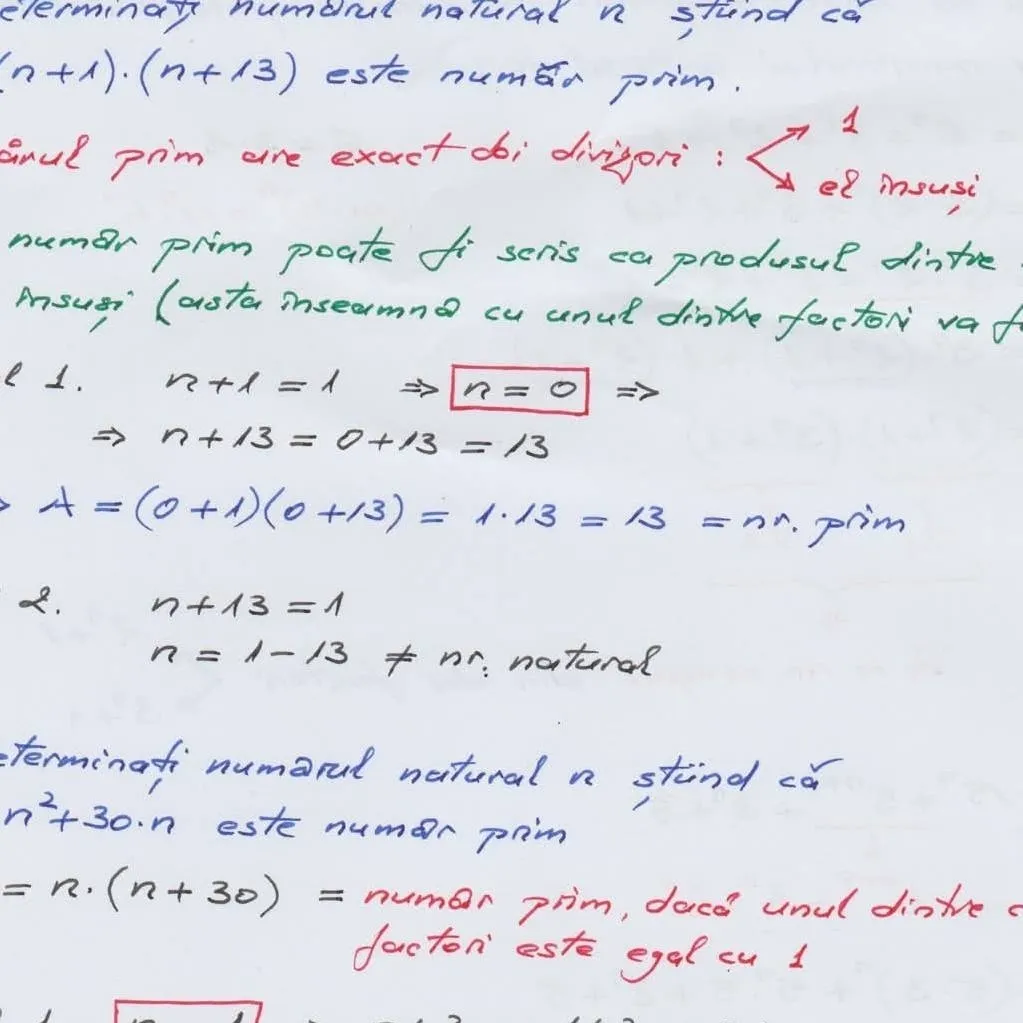 eterminați numărul natural n știind că
(n+1)·(n+13) este număr prim.
ărul prim are exact doi divizori : 1
el însuși
număr prim poate fi scris ca produsul dintre
însuși (asta înseamnă cu unul dintre factori va f
l 1. n+1 = 1 ⇒ n = 0 ⇒
⇒ n+13 = 0+13 = 13
A = (0+1)(0+13) = 1·13 = 13 = nr. prim
2. n+13 = 1
n = 1-13 ≠ nr. natural
eterminați numărul natural n știind că
n²+30·n este număr prim
= n·(n+30) = număr prim, dacă unul dintre
factori este egal cu 1